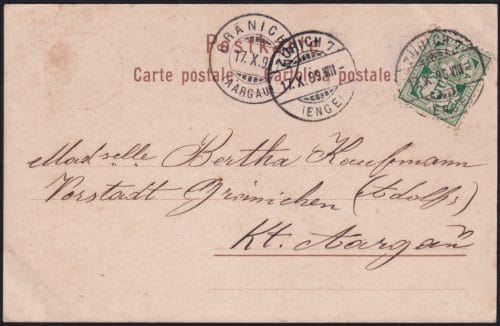 Postkarte
Carte postale. Cartolina postale.
GRÄNICHEN
17.X.9
(AARGAU)
ZÜRICH 7
17.X.99.VIII
(ENGE)
ZÜRICH 7
Madselle Bertha Kaufmann
Vorstadt Gränichen (Adolfs)
Kt. Aargau